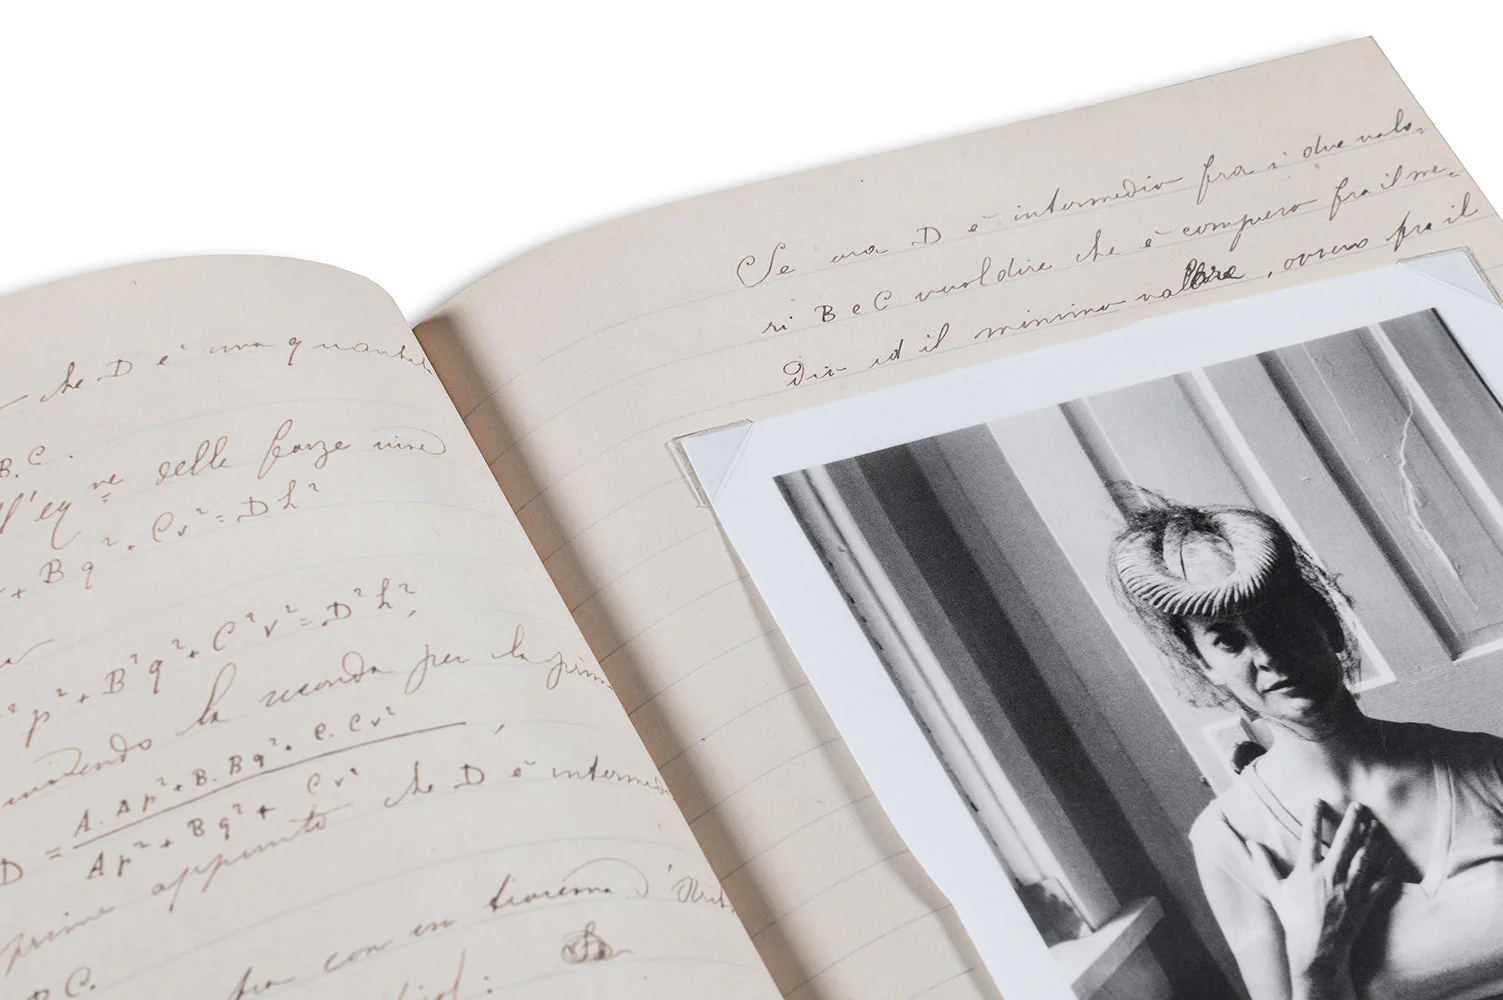 che D è una quantit
B. C.
ll'eqne delle forze vive
+ B q². Cv² = D h²
²p² + B²q² + C²v² = D²h²,
la seconda per la prim
D = A. Ap² + B. Bq². C. Cv² ,
Ap² + Bq² + Cv²
che D è intermed
prime appunto
con un teorema d'
B. C.
Se ora D è intermedio fra i due valo-
ri B e C vuol dire che è compreso fra il me-
dio ed il minimo valore, ovvero fra il